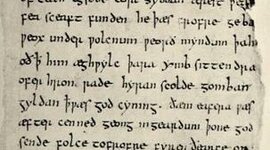 egsode eorl syððan ærest ƿear
fea sceaft funden he þæs frofre geba
ƿeox under ƿolcnum ƿeorð myndum þah
oð ꝥ him æghƿylc þara ymb sittendra
ofer hron rade hyran scolde gomban
gyldan ꝥ ƿæs god cyning. ðæm eafera ƿæs
æfter cenned geong in geardum þone god
sende folce to frofre fyren ðearfe on